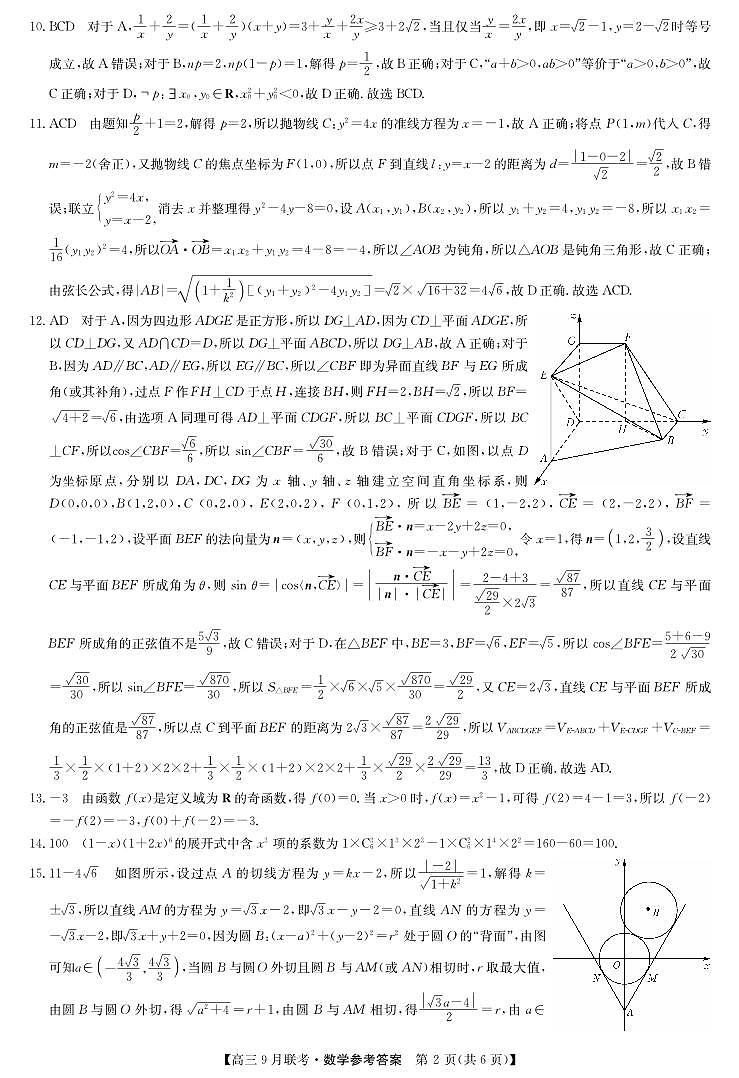 10. BCD 对于 A, 1/x + 2/y = (1/x + 2/y)(x+y) = 3 + y/x + 2x/y ≥ 3+2√2, 当且仅当 y/x = 2x/y, 即 x=√2-1, y=2-√2 时等号
成立, 故 A 错误; 对于 B, np=2, np(1-p)=1, 解得 p=1/2, 故 B 正确; 对于 C, “a+b>0, ab>0”等价于“a>0, b>0”, 故
C 正确; 对于 D, ¬p: ∃x₀, y₀∈R, x₀²+y₀²<0, 故 D 正确. 故选 BCD.
11. ACD 由题知 p/2+1=2, 解得 p=2, 所以抛物线 C: y²=4x 的准线方程为 x=-1, 故 A 正确; 将点 P(1,m)代入 C, 得
m=-2(舍正), 又抛物线 C 的焦点坐标为 F(1,0), 所以点 F 到直线 l: y=x-2 的距离为 d=|1-0-2|/√2=√2/2, 故 B 错
误; 联立 {y²=4x, y=x-2, 消去 x 并整理得 y²-4y-8=0, 设 A(x₁,y₁), B(x₂,y₂), 所以 y₁+y₂=4, y₁y₂=-8, 所以 x₁x₂=
1/16(y₁y₂)²=4, 所以 →OA·→OB=x₁x₂+y₁y₂=4-8=-4, 所以∠AOB 为钝角, 所以△AOB 是钝角三角形, 故 C 正确;
由弦长公式, 得|AB|=√((1+1/k²)[(y₁+y₂)²-4y₁y₂])=√2×√(16+32)=4√6, 故 D 正确. 故选 ACD.
12. AD 对于 A, 因为四边形 ADGE 是正方形, 所以 DG⊥AD, 因为 CD⊥平面 ADGE, 所
以 CD⊥DG, 又 AD∩CD=D, 所以 DG⊥平面 ABCD, 所以 DG⊥AB, 故 A 正确; 对于
B, 因为 AD∥BC, AD∥EG, 所以 EG∥BC, 所以∠CBF 即为异面直线 BF 与 EG 所成
角(或其补角), 过点 F 作 FH⊥CD 于点 H, 连接 BH, 则 FH=2, BH=√2, 所以 BF=
√(4+2)=√6, 由选项 A 同理可得 AD⊥平面 CDGF, 所以 BC⊥平面 CDGF, 所以 BC
⊥CF, 所以cos∠CBF=√6/6, 所以 sin∠CBF=√30/6, 故 B 错误; 对于 C, 如图, 以点 D
为坐标原点, 分别以 DA, DC, DG 为 x 轴、y 轴、z 轴建立空间直角坐标系, 则
D(0,0,0), B(1,2,0), C(0,2,0), E(2,0,2), F(0,1,2), 所以 →BE=(1,-2,2), →CE=(2,-2,2), →BF=
(-1,-1,2), 设平面 BEF 的法向量为 n=(x,y,z), 则 {→BE·n=x-2y+2z=0, →BF·n=-x-y+2z=0, 令 x=1, 得 n=(1,2,3/2), 设直线
CE 与平面 BEF 所成角为 θ, 则 sin θ=|cos⟨n,→CE⟩|=|n·→CE/(|n|·|→CE|)|=(2-4+3)/(√29/2×2√3)=√87/87, 所以直线 CE 与平面
BEF 所成角的正弦值不是 5√3/9, 故 C 错误; 对于 D, 在△BEF 中, BE=3, BF=√6, EF=√5, 所以 cos∠BFE=(5+6-9)/(2√30)
=√30/30, 所以 sin∠BFE=√870/30, 所以 S△BFE=1/2×√6×√5×√870/30=√29/2, 又 CE=2√3, 直线 CE 与平面 BEF 所成
角的正弦值是 √87/87, 所以点 C 到平面 BEF 的距离为 2√3×√87/87=2√29/29, 所以 V_ABCDGEF=V_E-ABCD+V_E-CDGF+V_C-BEF=
1/3×1/2×(1+2)×2×2+1/3×1/2×(1+2)×2×2+1/3×√29/2×2√29/29=13/3, 故 D 正确. 故选 AD.
G
z
F
E
D
H
C
y
B
A
x
13. -3 由函数 f(x)是定义域为 R 的奇函数, 得 f(0)=0. 当 x>0 时, f(x)=x²-1, 可得 f(2)=4-1=3, 所以 f(-2)
=-f(2)=-3, f(0)+f(-2)=-3.
14. 100 (1-x)(1+2x)⁶的展开式中含 x³ 项的系数为 1×C₆³×1³×2³-1×C₆²×1⁴×2²=160-60=100.
15. 11-4√6 如图所示, 设过点 A 的切线方程为 y=kx-2, 所以 |-2|/√(1+k²)=1, 解得 k=
±√3, 所以直线 AM 的方程为 y=√3x-2, 即√3x-y-2=0, 直线 AN 的方程为 y=
-√3x-2, 即√3x+y+2=0, 因为圆 B: (x-a)²+(y-2)²=r² 处于圆 O 的“背面”, 由图
可知a∈(-4√3/3, 4√3/3), 当圆 B 与圆O 外切且圆 B 与 AM(或 AN)相切时, r 取最大值,
由圆 B 与圆 O 外切, 得 √(a²+4)=r+1, 由圆 B 与 AM 相切, 得|√3a-4|/2=r, 由 a∈
y
B
O
x
N
M
A
【高三 9 月联考·数学参考答案 第 2 页(共 6 页)】